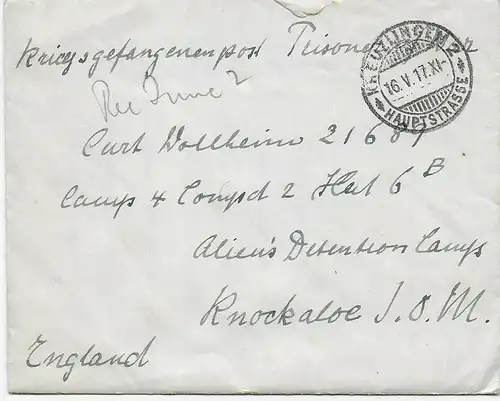 Kriegsgefangenenpost Prisoner
KREUZLINGEN 2
16.V.17.XI-
HAUPTSTRASSE
Rec June 2
Curt Wollheim 21687
Camp 4 Compd 2 Hut 6 B
Alien's Detention Camp
Knockaloe I.O.M.
England